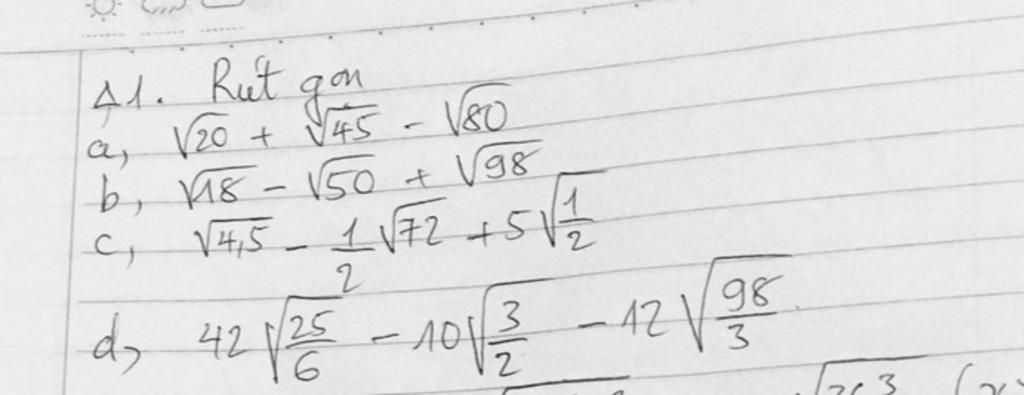 Δ1. Rút gọn
a, √20 + √45 - √80
b, √18 - √50 + √98
c, √4,5 - 1/2 √72 + 5√1/2
d, 42√25/6 - 10√3/2 - 12√98/3